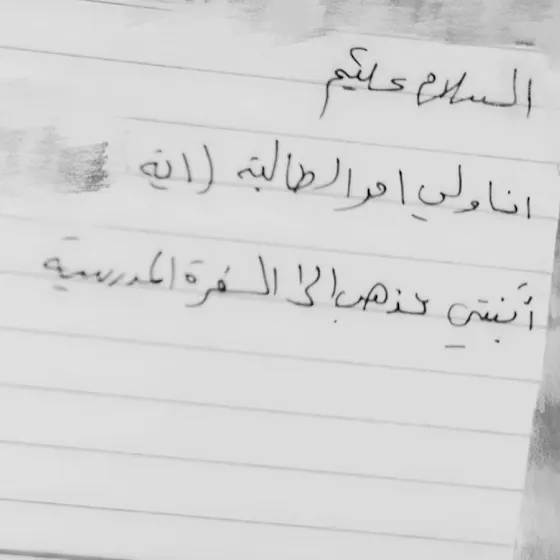 السلام عليكم
انا ولي امر الطالبة (اية
أبنتي تذهب الى السفرة المدرسية